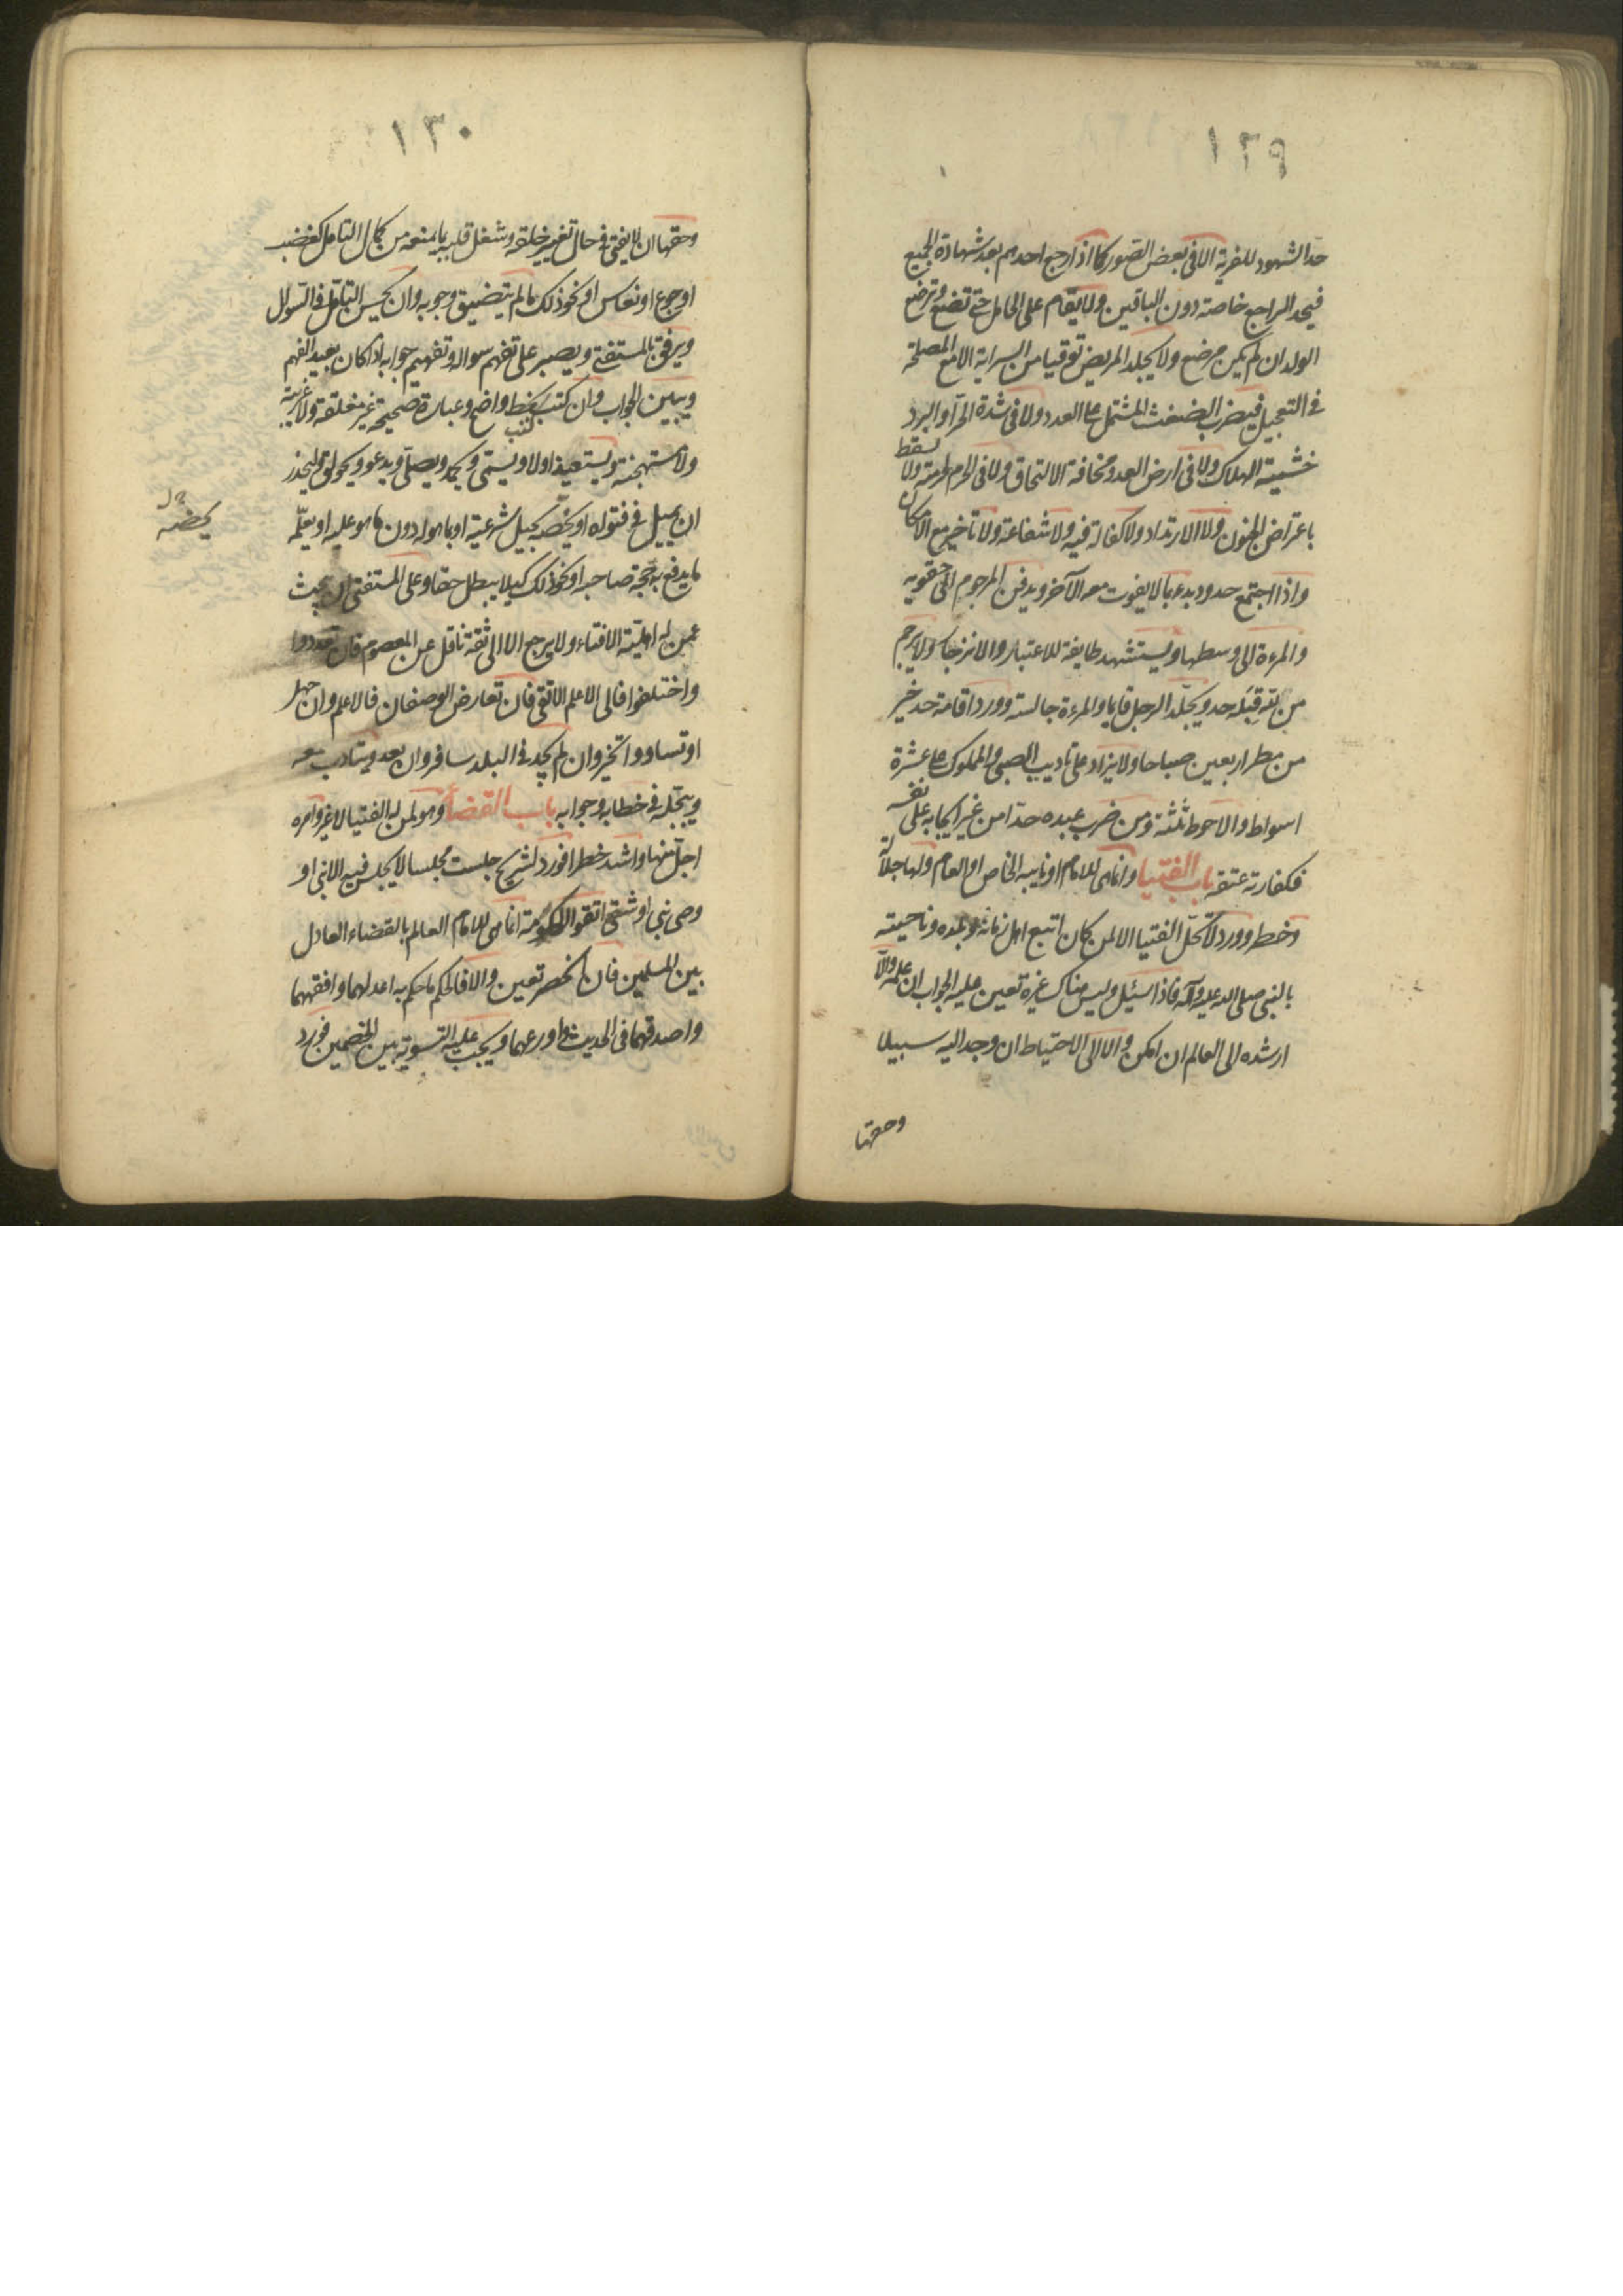 ١٢٩
حد الشهود للفرية الا فى بعض الصور كما اذا رجع احدهم بعد شهادة الجميع
فيحد الراجع خاصة دون الباقين ولا يقام على الحامل حتى تضع وترضع
الولد ان لم يكن مرضع ولا يجلد المريض توقيا من السراية الا مع المصلحة
فى التعجيل فيضرب بالضغث المشتمل على العدد ولا فى شدة الحر او البرد
خشية الهلاك ولا فى ارض العدو مخافة الالتحاق ولا فى الحرم لحرمته ولا يسقط
باعتراض الجنون ولا الارتداد ولا كفالة فيه ولا شفاعة ولا تاخير مع الامكان
واذا اجتمع حدود بدء بما لا يفوت معه الآخر ويدفن المرجوم الى حقويه
والمرءة الى وسطها ويستشهد طايفة للاعتبار والانزجار ولا يرجم
من لله قبله حد ويجلد الرجل قايما والمرءة جالسة وورد اقامة حد خير
من مطر اربعين صباحا ولا يزاد على تاديب الصبى والمملوك على عشرة
اسواط والاحوط ثلثة ومن ضرب عبده حدا من غير ايجابه على نفسه
فكفارته عتقه باب الفتيا وانما هى للامام او نايبه الخاص او العام ولها جلالة
وخطر وورد لا تحل الفتيا الا لمن كان اتبع اهل زمانه وبلده وناحيته
بالنبى صلى الله عليه وآله فاذا سئل وليس هناك غيره تعين عليه الجواب ان علمه والا
ارشده الى العالم ان امكن والا الى الاحتياط ان وجد اليه سبيلا
وحقها
١٣٠
وحقها ان لا يفتى فى حال تغير خلقه وشغل قلبه بما يمنعه من كمال التامل كغضب
او جوع او نعاس او نحو ذلك ما لم يتضيق وجوبه وان يحسن التامل فى السوال
ويرفق بالمستفتى ويصبر على تفهم سواله وتفهيم جوابه اذا كان بعيد الفهم
ويبين الجواب وان كتب كتب بخط واضح وعبارة صحيحة غير مغلقة ولا غريبة
ولا مستهجنة ويستعيذ اولا ويسمى ويحمد ويصلى ويدعو ويحولق وليحذر
ان يميل فى فتواه او يخصه بحيل شرعية او بما هو له دون ما هو عليه او يعلمه
ما يدفع به حجة صاحبه او نحو ذلك كيلا يبطل حقا وعلى المستفتى ان يبحث
عمن له اهلية الافتاء ولا يرجع الا الى ثقة ناقل عن المعصوم فان تعددوا
واختلفوا فالى الاعلم الاتقى فان تعارض الوصفان فالاعلم وان جهل
او تساووا تخير وان لم يجد فى البلد سافر وان بعد ويتادب معه
ويبجله فى خطابه وجوابه باب القضاء وهو لمن له الفتيا لا غير وامره
اجل منها واشد خطرا فورد لشريح جلست مجلسا لا يجلس فيه الا نبى او
وصى نبى او شقى اتقوا الحكومة انما هى للامام العالم بالقضاء العادل
بين المسلمين فان انحصر تعين والا فالحكم ما حكم به اعدلهما وافقههما
واصدقهما فى الحديث واورعهما ويجب عليه التسوية بين الخصمين فورد